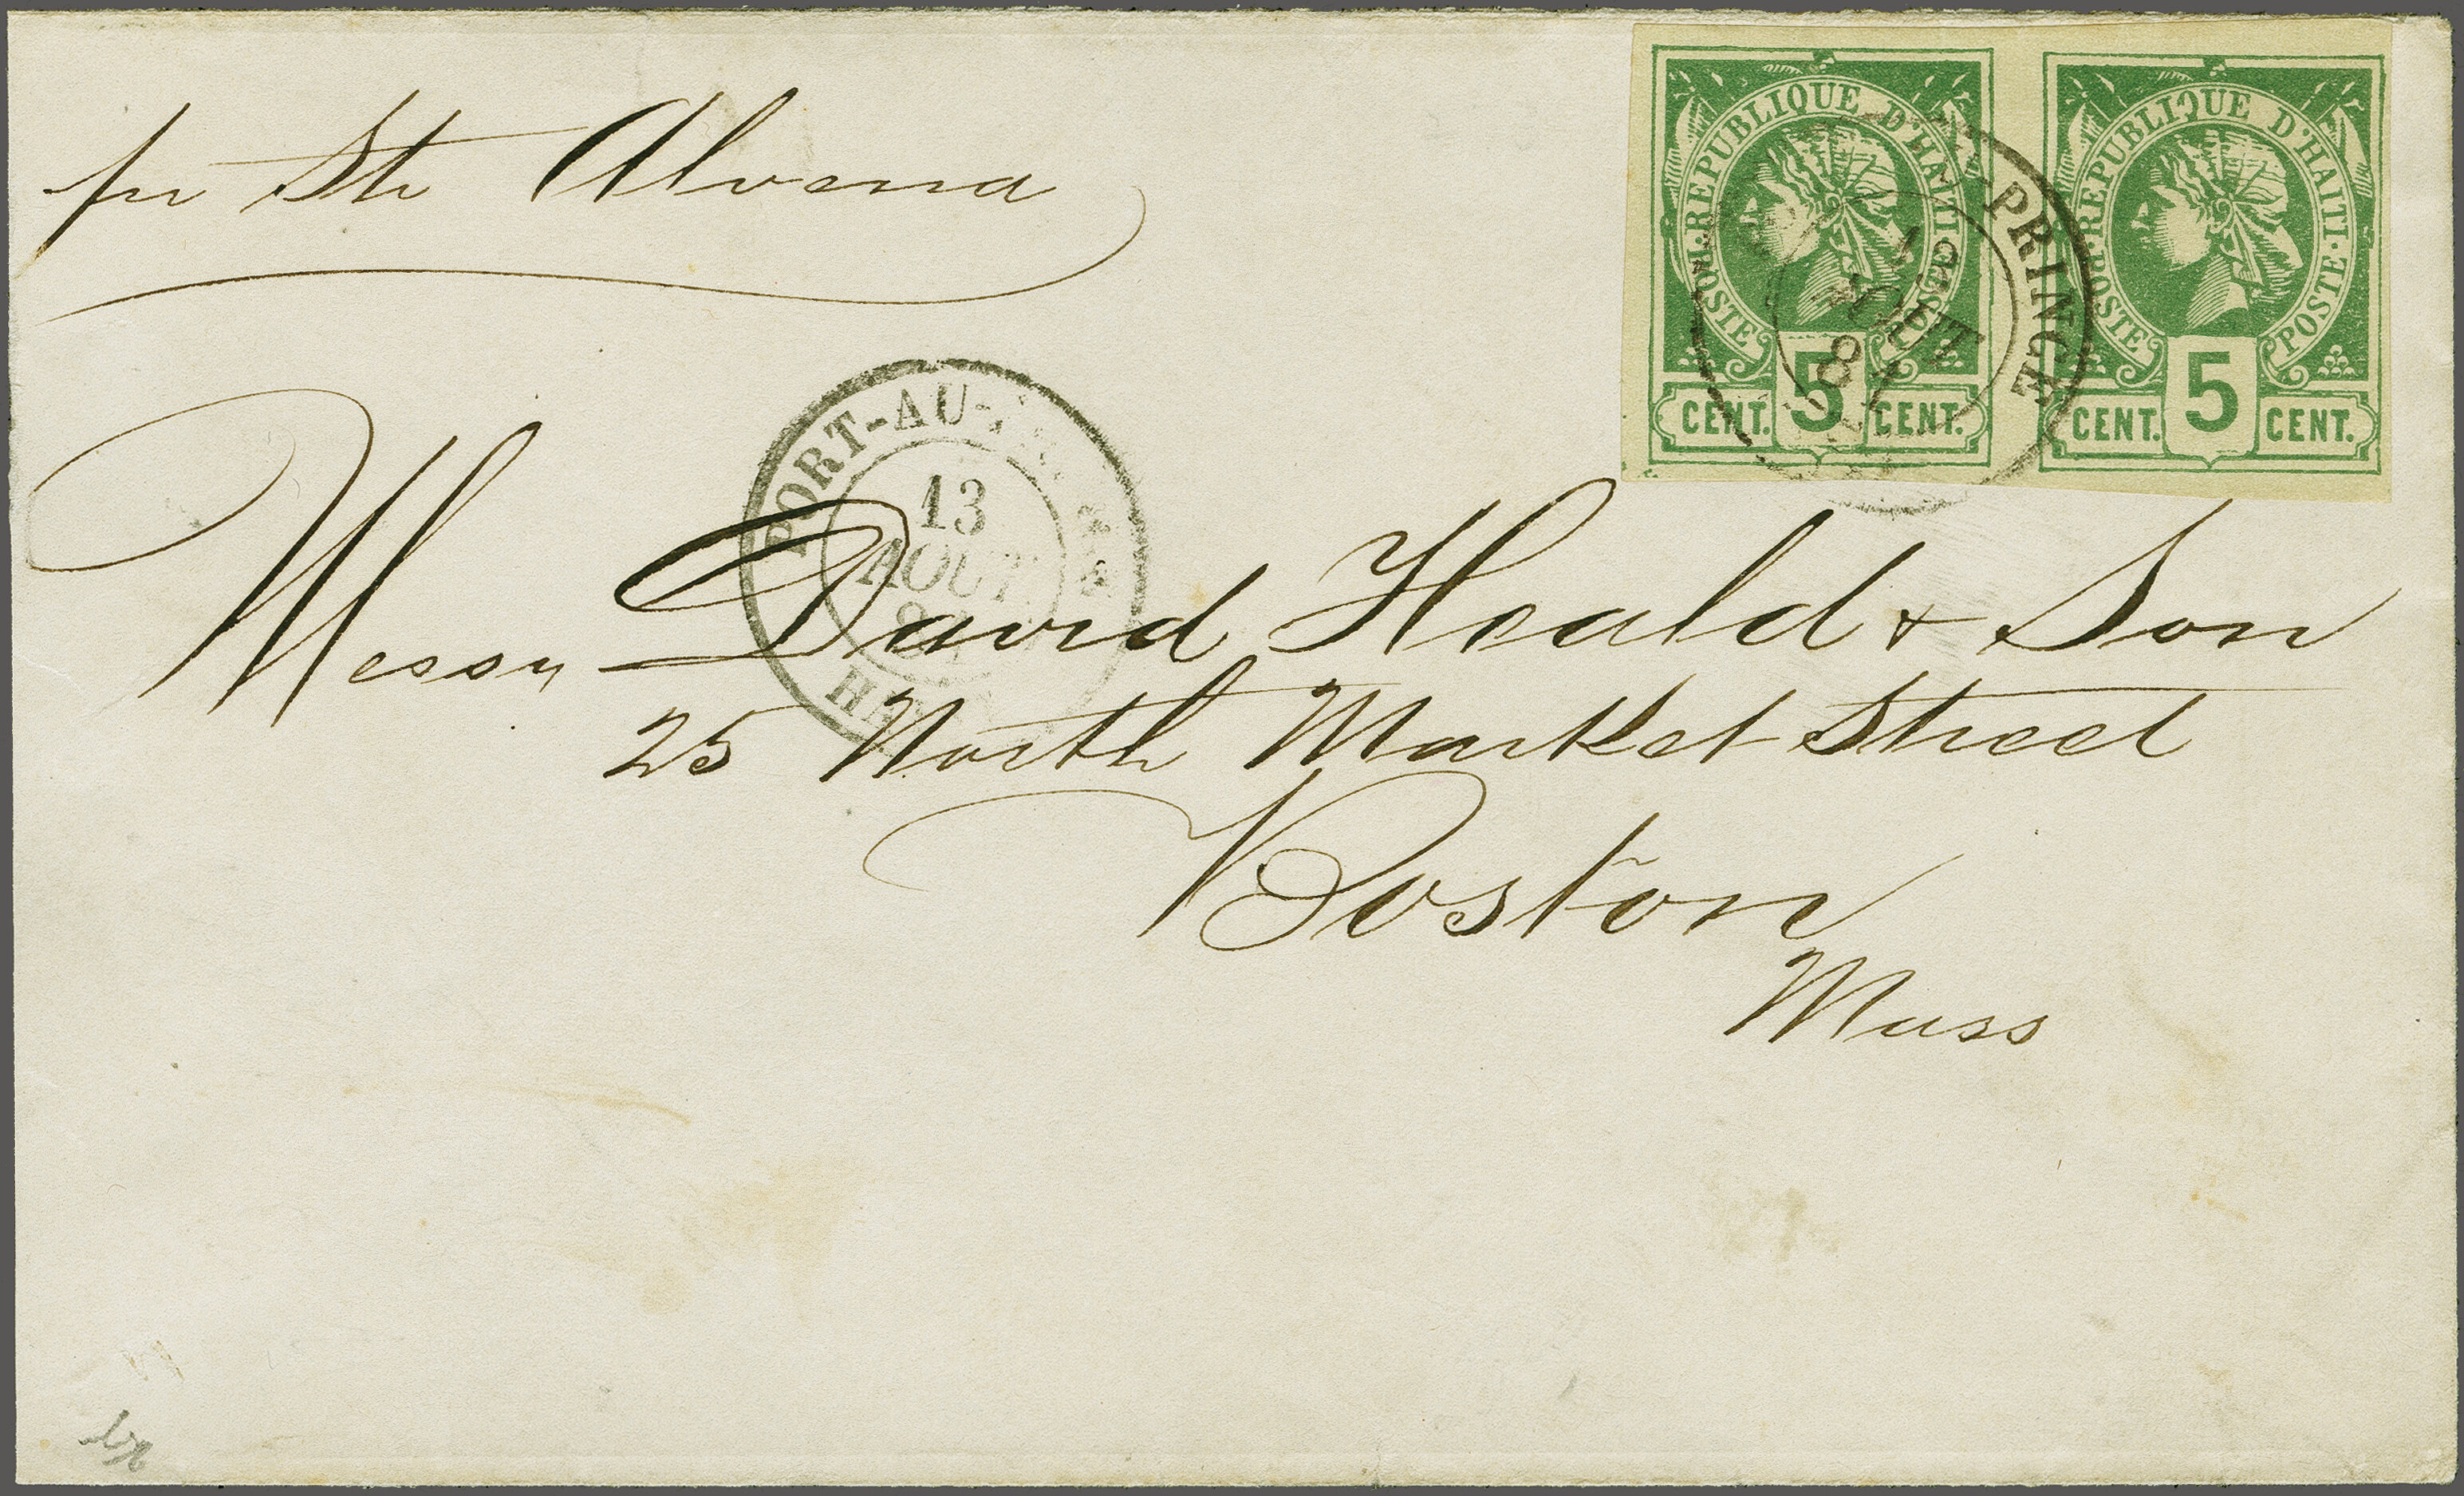 pr Str Alvena
REPUBLIQUE D'HAITI
POSTE
POSTE
CENT. 5 CENT.
REPUBLIQUE D'HAITI
POSTE
POSTE
CENT. 5 CENT.
PRINCE
AOUT
PORT-AU-
13
AOUT
Messrs David Heald & Son
25 North Market Street
Boston
Mass